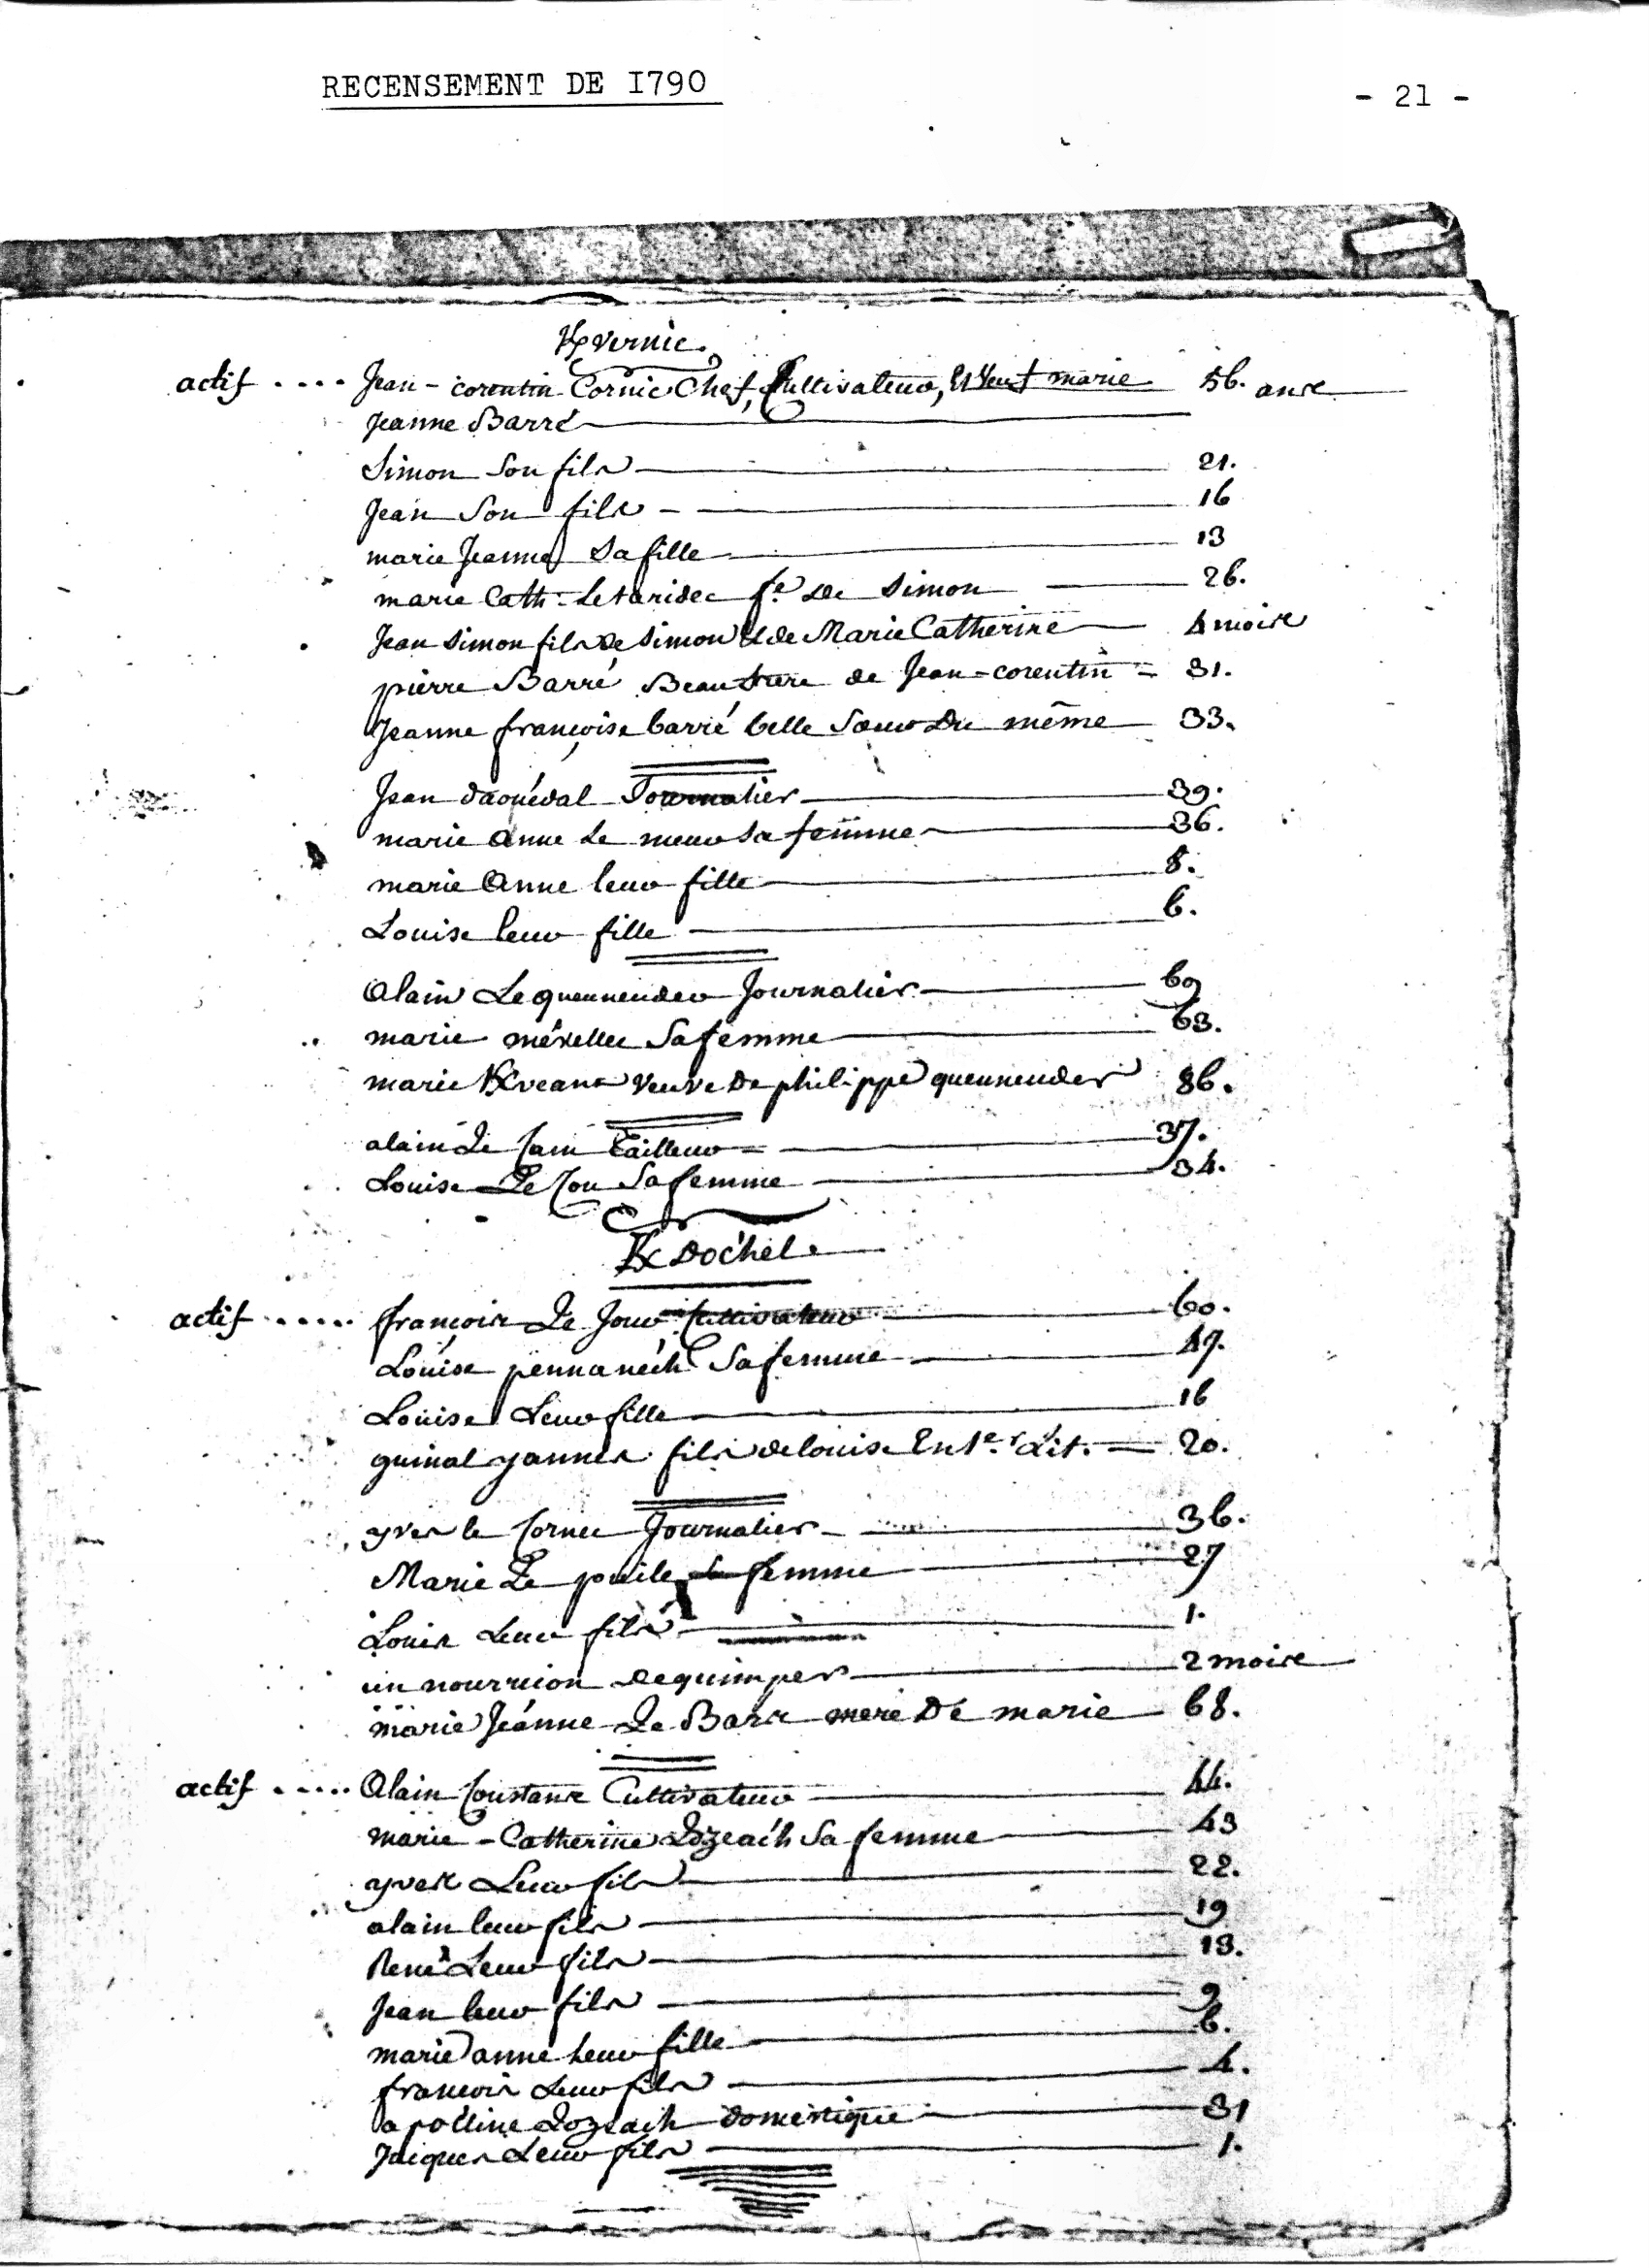 RECENSEMENT DE I790
- 21 -
Kvernic.
actif .... Jean-corentin Cornic Chef, Cultivateur, et Veuf marie 56. ans
Jeanne Barré
Simon Son fils 21.
Jean Son fils 16
marie Jeanne Sa fille 13
marie Cath. Letaridec fe. de Simon 26.
Jean Simon fils de Simon et de Marie Catherine 4 mois
pierre Barré Beau frere de Jean-corentin = 31.
Jeanne françoise barré belle Soeur Du même 33.
Jean daouëdal Journalier 39.
marie anne Le meur Sa femme 36.
marie Anne leur fille 8.
Louise leur fille 6.
Alain Lequennender Journalier 69
marie mévellec Sa femme 63.
marie Kveant veuve De philippe quennender 86.
alain Le Cam Tailleur = 37.
Louise Le Cou Sa femme 34.
K Doc'hel.
actif ..... françois Le Jour Cultivateur 60.
Louise pennanéch Sa femme 47.
Louise Leur fille 16
guinal yannes fils de louise En 1er. Lit. = 20.
yves le Cornec Journalier 36.
Marie Le femme 27
Louis Leur fils 1.
un nourricon de quimper 2 mois
marie Jeanne Le Barr mere De marie 68.
actif ..... Alain Constans Cultivateur 44.
marie-Catherine Lozeac'h Sa femme 43
yves Leur fils 22.
alain leur fils 19
René Leur fils 13.
Jean leur fils 9
marie anne leur fille 6.
francois Leur fils 4.
apolline Lozeach domestique 31
Jacques Leur fils 1.